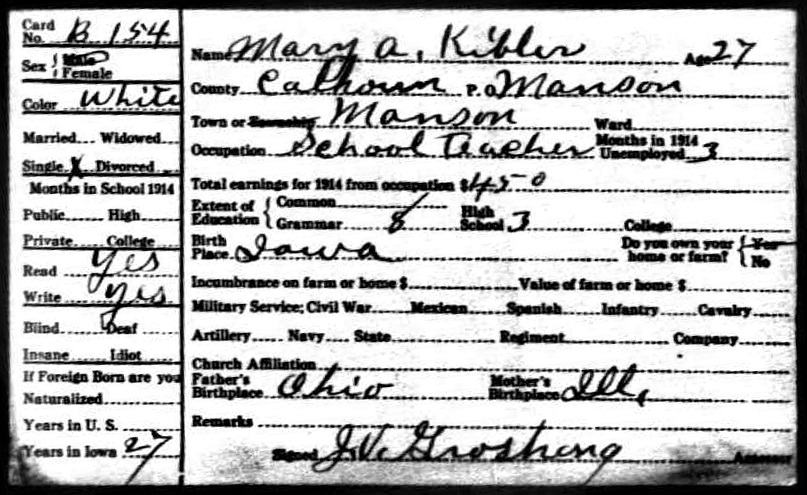 Card No. B 154
Sex { Male Female
Color White
Married Widowed
Single X Divorced
Months in School 1914
Public High
Private College
Read Yes
Write yes
Blind Deaf
Insane Idiot
If Foreign Born are you
Naturalized
Years in U. S.
Years in Iowa 27
Name Mary A. Kibler Age 27
County Calhoun P. O. Manson
Town or Township Manson Ward
Occupation School Teacher Months in 1914 Unemployed 3
Total earnings for 1914 from occupation $ 450
Extent of Education { Common
Grammar 8 High School 3 College
Birth Place Iowa Do you own your home or farm? { Yes No
Incumbrance on farm or home $ Value of farm or home $
Military Service; Civil War Mexican Spanish Infantry Cavalry
Artillery Navy State Regiment Company
Church Affiliation
Father's Birthplace Ohio Mother's Birthplace Ill.
Remarks
Signed J.V. Groshong Assessor